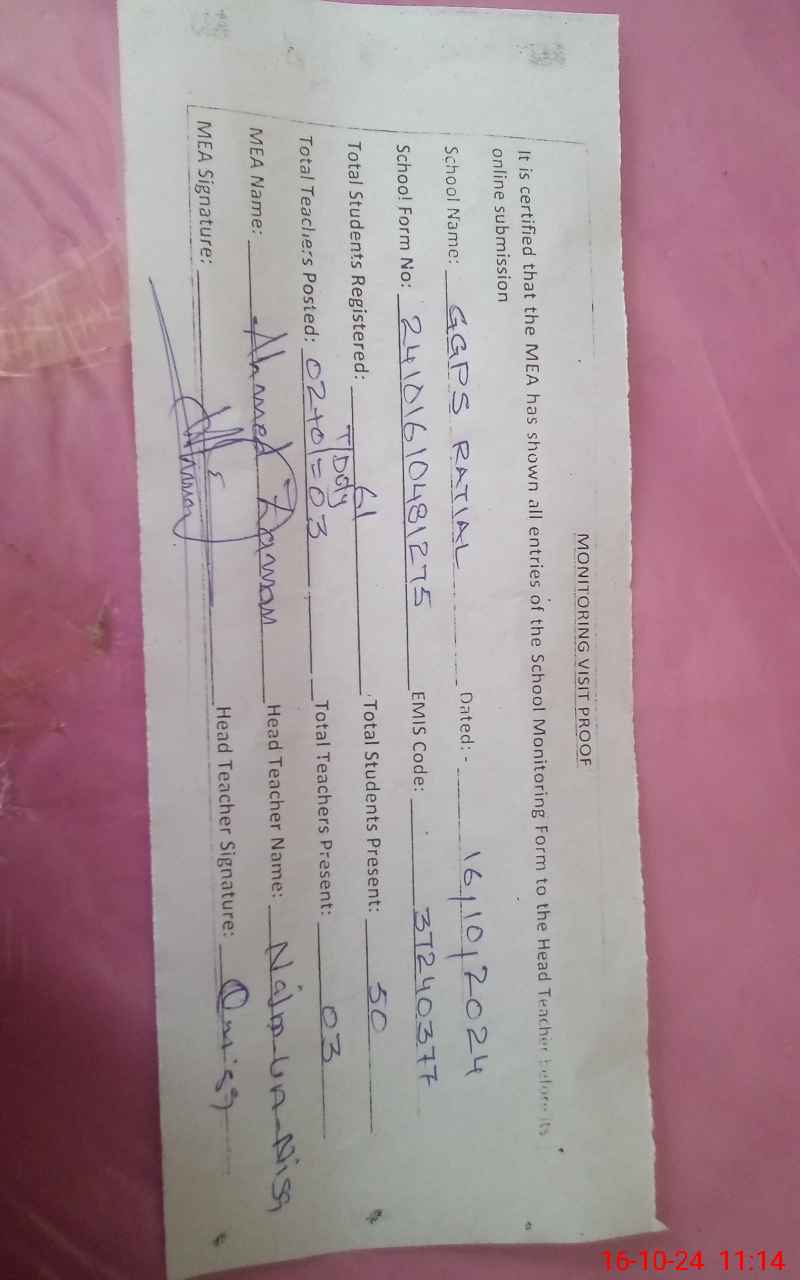 MONITORING VISIT PROOF
It is certified that the MEA has shown all entries of the School Monitoring Form to the Head Teacher before its
online submission
School Name: GGPS RATIAL Dated: - 16/10/2024
School Form No: 24101610481275 EMIS Code: 37240377
Total Students Registered: 61 Total Students Present: 50
Total Teachers Posted: 02+01=03 Total Teachers Present: 03
MEA Name: Ahmed Zaman Head Teacher Name: Najm-un-Nisa
MEA Signature: Head Teacher Signature:
16-10-24 11:14